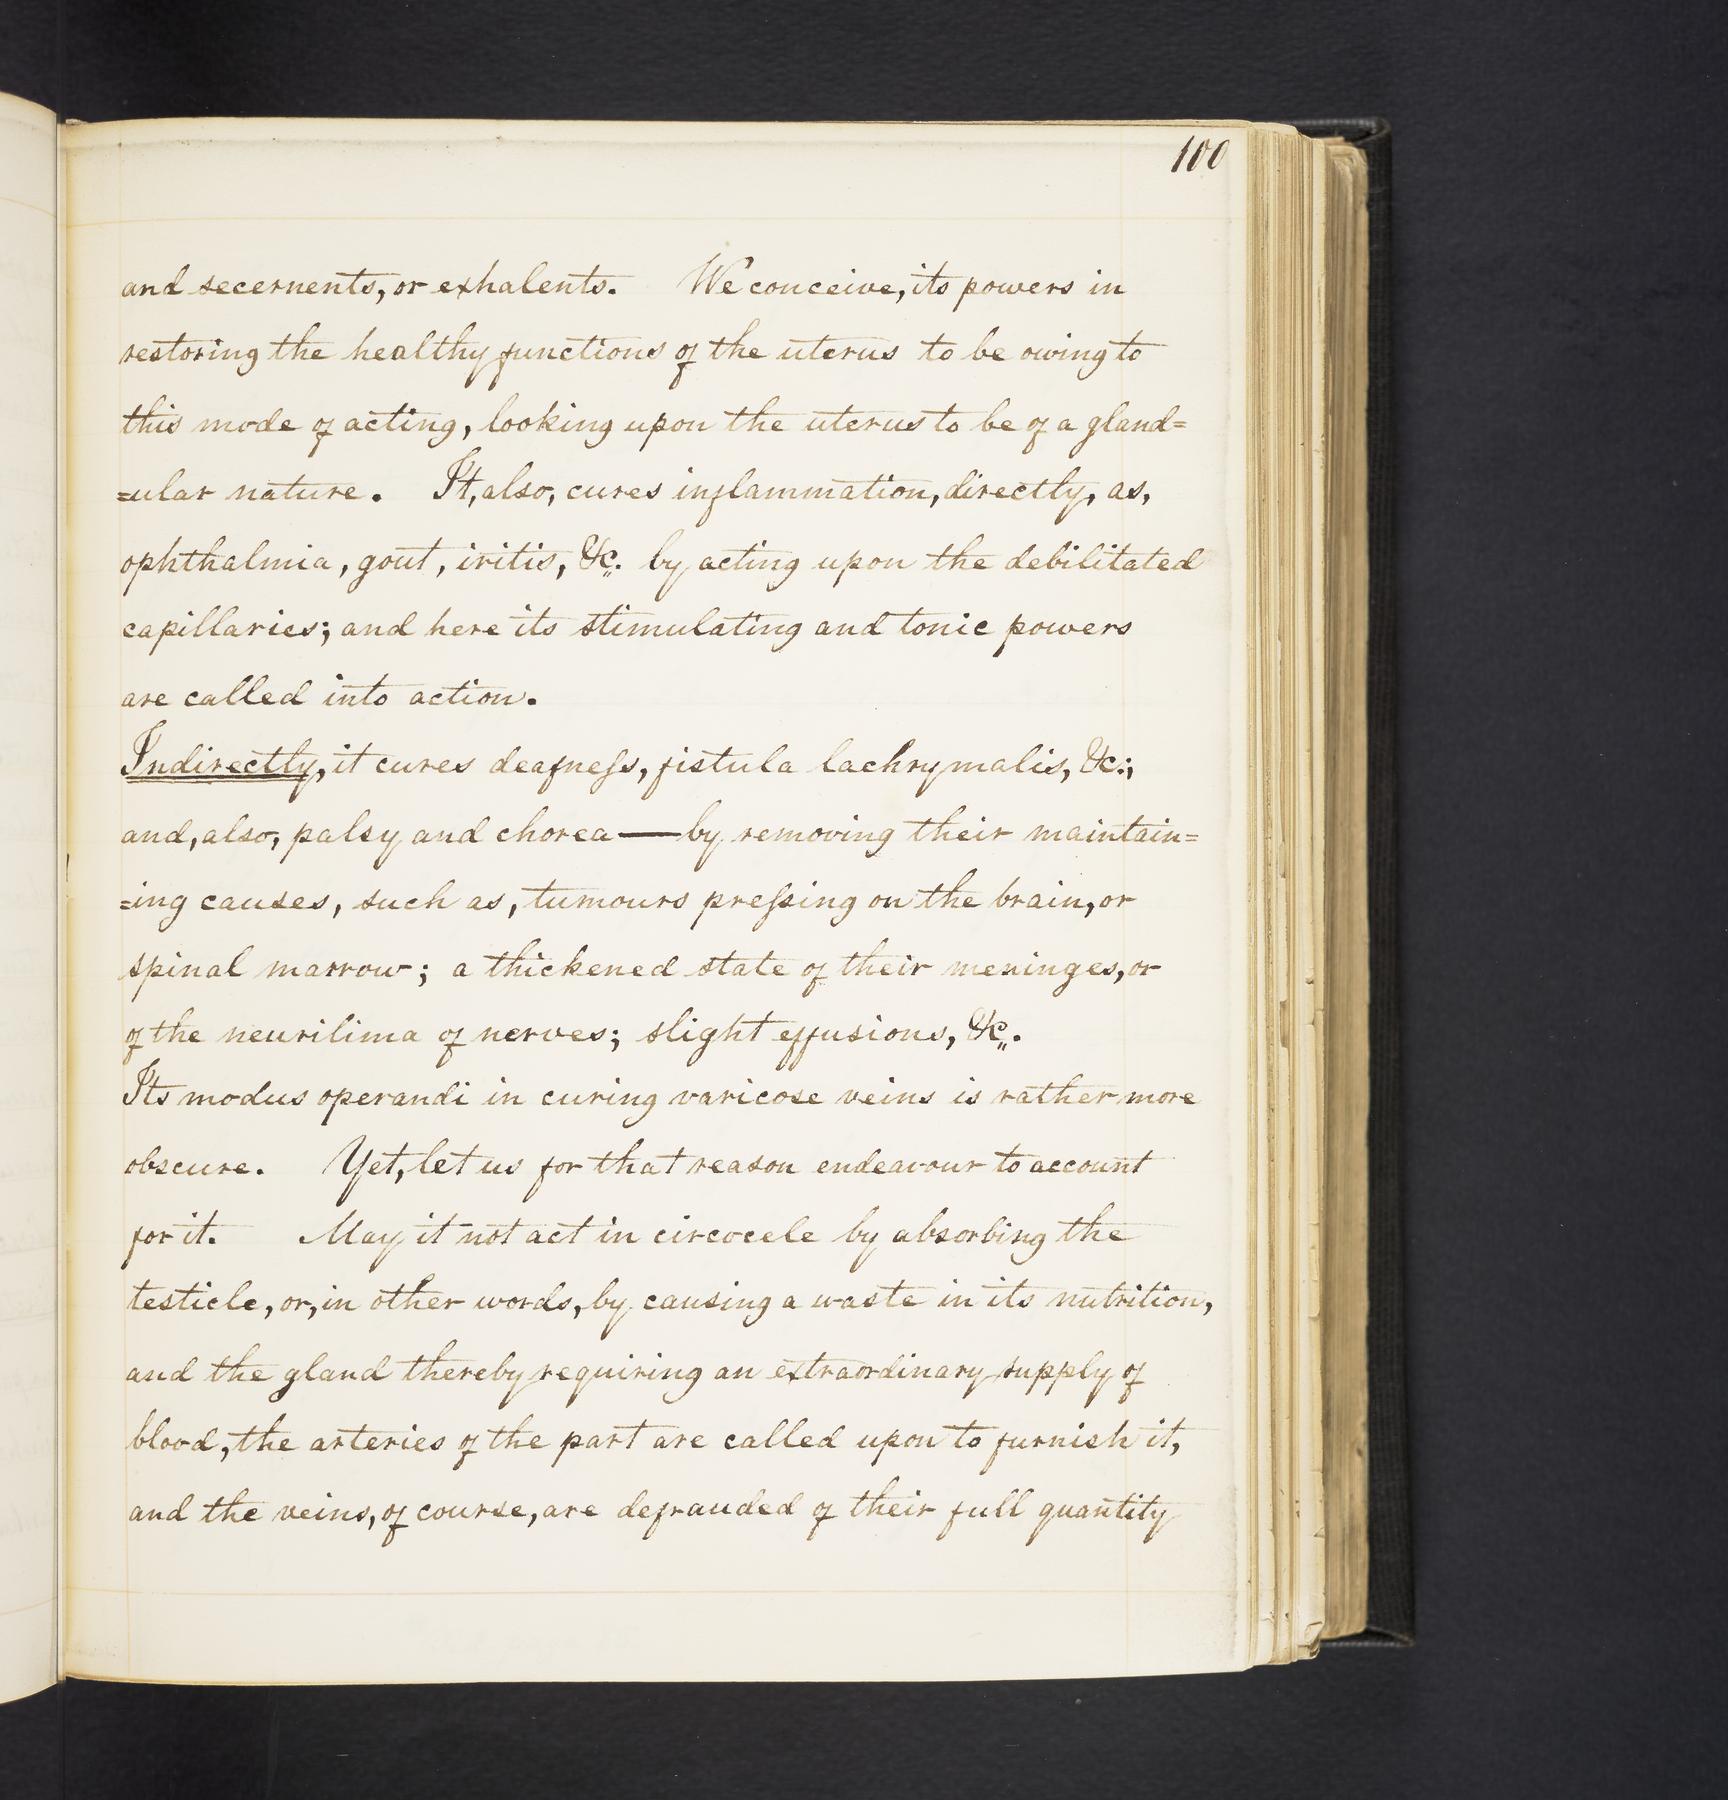 100
and secernents, or exhalents. We conceive, its powers in
restoring the healthy functions of the uterus to be owing to
this mode of acting, looking upon the uterus to be of a gland=
=ular nature. It, also, cures inflammation, directly, as,
ophthalmia, gout, iritis, &c. by acting upon the debilitated
capillaries; and here its stimulating and tonic powers
are called into action.
Indirectly, it cures deafneſs, fistula lachrymalis, &c.;
and, also, palsy and chorea — by removing their maintain=
=ing causes, such as, tumours preſsing on the brain, or
spinal marrow; a thickened state of their meninges, or
of the neurilima of nerves; slight effusions, &c.
Its modus operandi in curing varicose veins is rather more
obscure. Yet, let us for that reason endeavour to account
for it. May it not act in circocele by absorbing the
testicle, or, in other words, by causing a waste in its nutrition,
and the gland thereby requiring an extraordinary supply of
blood, the arteries of the part are called upon to furnish it,
and the veins, of course, are defrauded of their full quantity